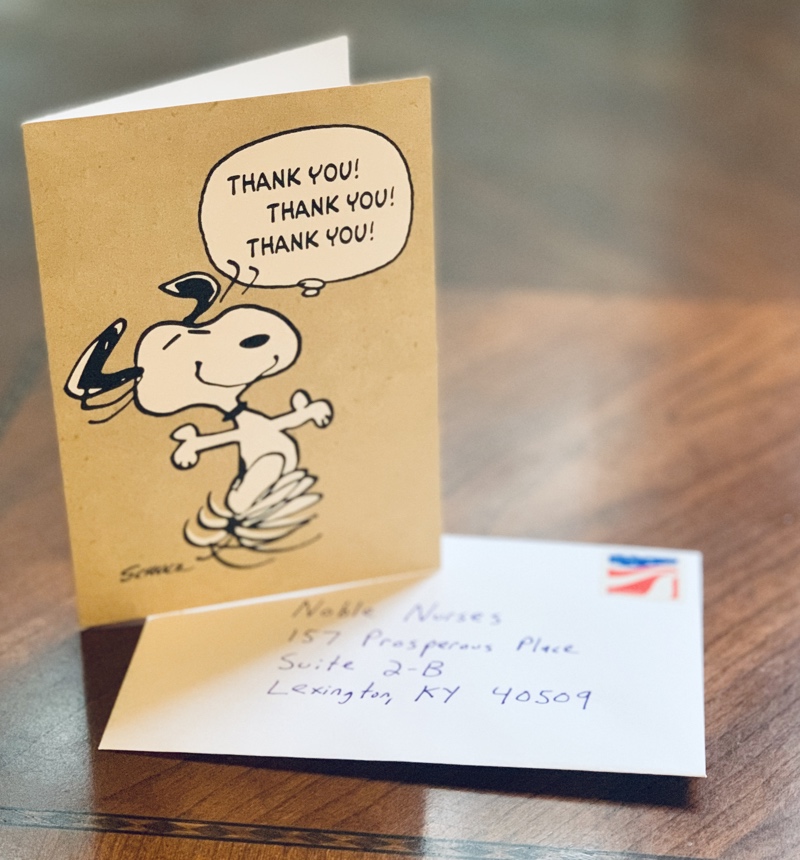 THANK YOU!
THANK YOU!
THANK YOU!
SCHULZ
Noble Nurses
157 Prosperous Place
Suite 2-B
Lexington, KY 40509